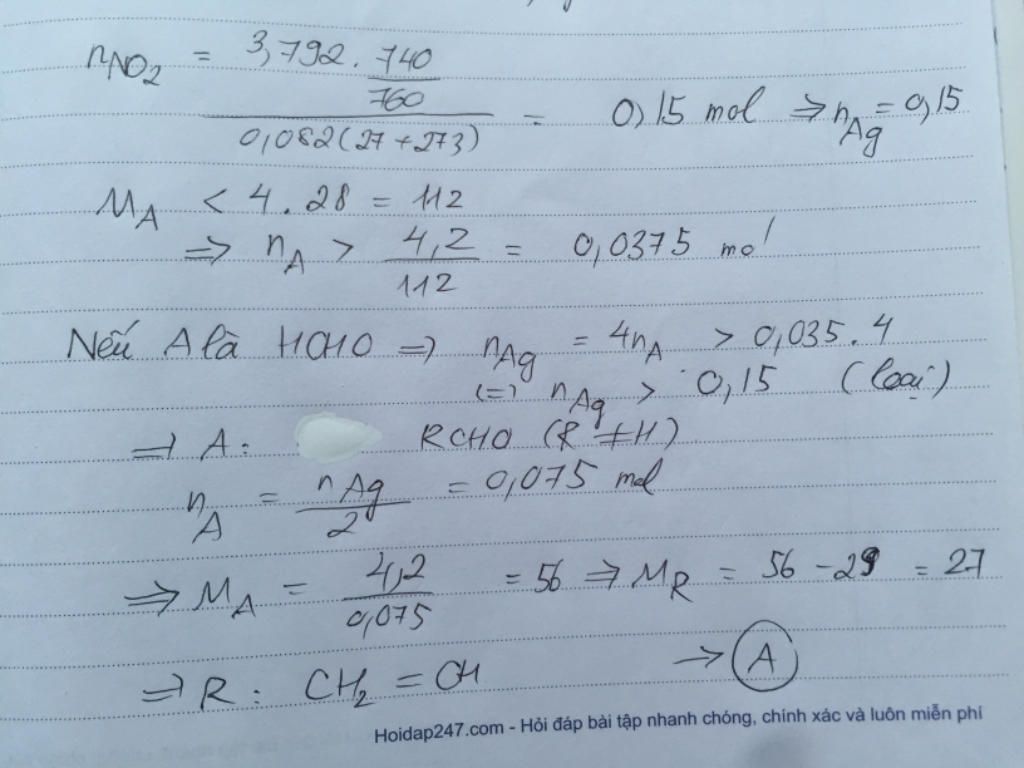 nNO2 = 3,792 . 740/760 / 0,082(27 + 273) = 0,15 mol ⇒ nAg = 0,15
MA < 4 . 28 = 112
⇒ nA > 4,2/112 = 0,0375 mol
Nếu A là HCHO ⇒ nAg = 4nA > 0,035 . 4
(=) nAg > 0,15 (loại)
⇒ A: RCHO (R ≠ H)
nA = nAg/2 = 0,075 mol
⇒ MA = 4,2/0,075 = 56 ⇒ MR = 56 - 29 = 27
⇒ R : CH2 = CH → A
Hoidap247.com - Hỏi đáp bài tập nhanh chóng, chính xác và luôn miễn phí